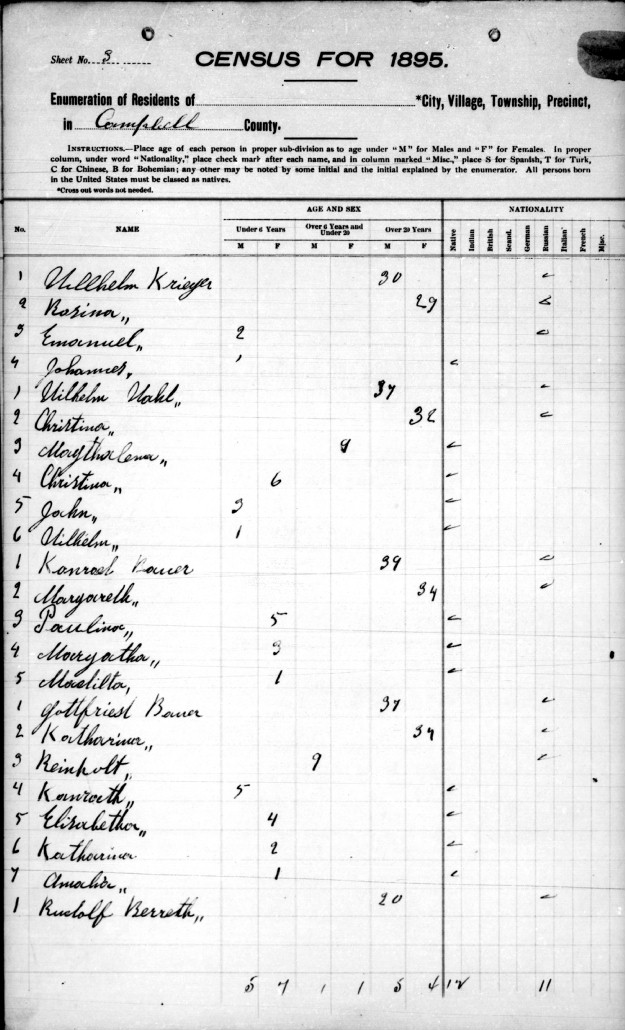 Sheet No. 3
CENSUS FOR 1895.
Enumeration of Residents of *City, Village, Township, Precinct,
in Campbell County.
INSTRUCTIONS.—Place age of each person in proper sub-division as to age under "M" for Males and "F" for Females. In proper
column, under word "Nationality," place check mark after each name, and in column marked "Misc.," place S for Spanish, T for Turk,
C for Chinese, B for Bohemian; any other may be noted by some initial and the initial explained by the enumerator. All persons born
in the United States must be classed as natives.
*Cross out words not needed.
AGE AND SEX NATIONALITY
No. NAME Under 6 Years Over 6 Years and Under 20 Over 20 Years Native Indian British Scand. German Russian Italian French Misc.
M F M F M F
1 Willhelm Krieger 30 ✓
2 Rosina „ 29 ✓
3 Emanuel „ 2 ✓
4 Johannes „ 1 ✓
1 Wilhelm Wahl „ 37 ✓
2 Christina „ 32 ✓
3 Magthalena „ 9 ✓
4 Christina „ 6 ✓
5 John „ 3 ✓
6 Wilhelm „ 1 ✓
1 Konrad Bauer 39 ✓
2 Margareth „ 34 ✓
3 Paulina „ 5 ✓
4 Margatha „ 3 ✓
5 Madilta „ 1 ✓
1 Gottfried Bauer 37 ✓
2 Katharina „ 34 ✓
3 Reinholt „ 9 ✓
4 Konrath „ 5 ✓
5 Elisabetha „ 4 ✓
6 Katharina 2 ✓
7 Amalia „ 1 ✓
1 Rudolf Berreth „ 20 ✓
5 7 1 1 5 4 12 11